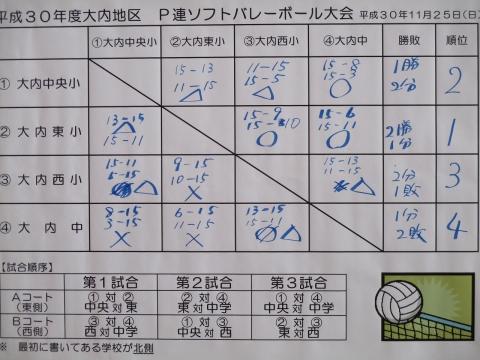 平成３０年度大内地区　Ｐ連ソフトバレーボール大会 平成３０年１１月２５日(日)
①大内中央小 ②大内東小 ③大内西小 ④大内中 勝敗 順位
① 大内中央小 15-13 11-15 △ 11-15 15-5 △ 15-8 15-3 ○ 1勝 2分 2
② 大内東小 13-15 △ 15-11 15-9 15-10 ○ 15-6 15-11 ○ 2勝 1分 1
③ 大内西小 15-11 5-15 △ 9-15 10-15 × 15-13 11-15 △ 2分 1敗 3
④ 大内中 8-15 3-15 × 6-15 11-15 × 13-15 15-11 △ 1分 2敗 4
【試合順序】
第１試合 第２試合 第３試合
Ａコート ① 対 ② ② 対 ④ ① 対 ④
(東側) 中央 対 東 東 対 中学 中央 対 中学
Ｂコート ③ 対 ④ ① 対 ③ ② 対 ③
(西側) 西 対 中学 中央 対 西 東 対 西
※ 最初に書いてある学校が北側